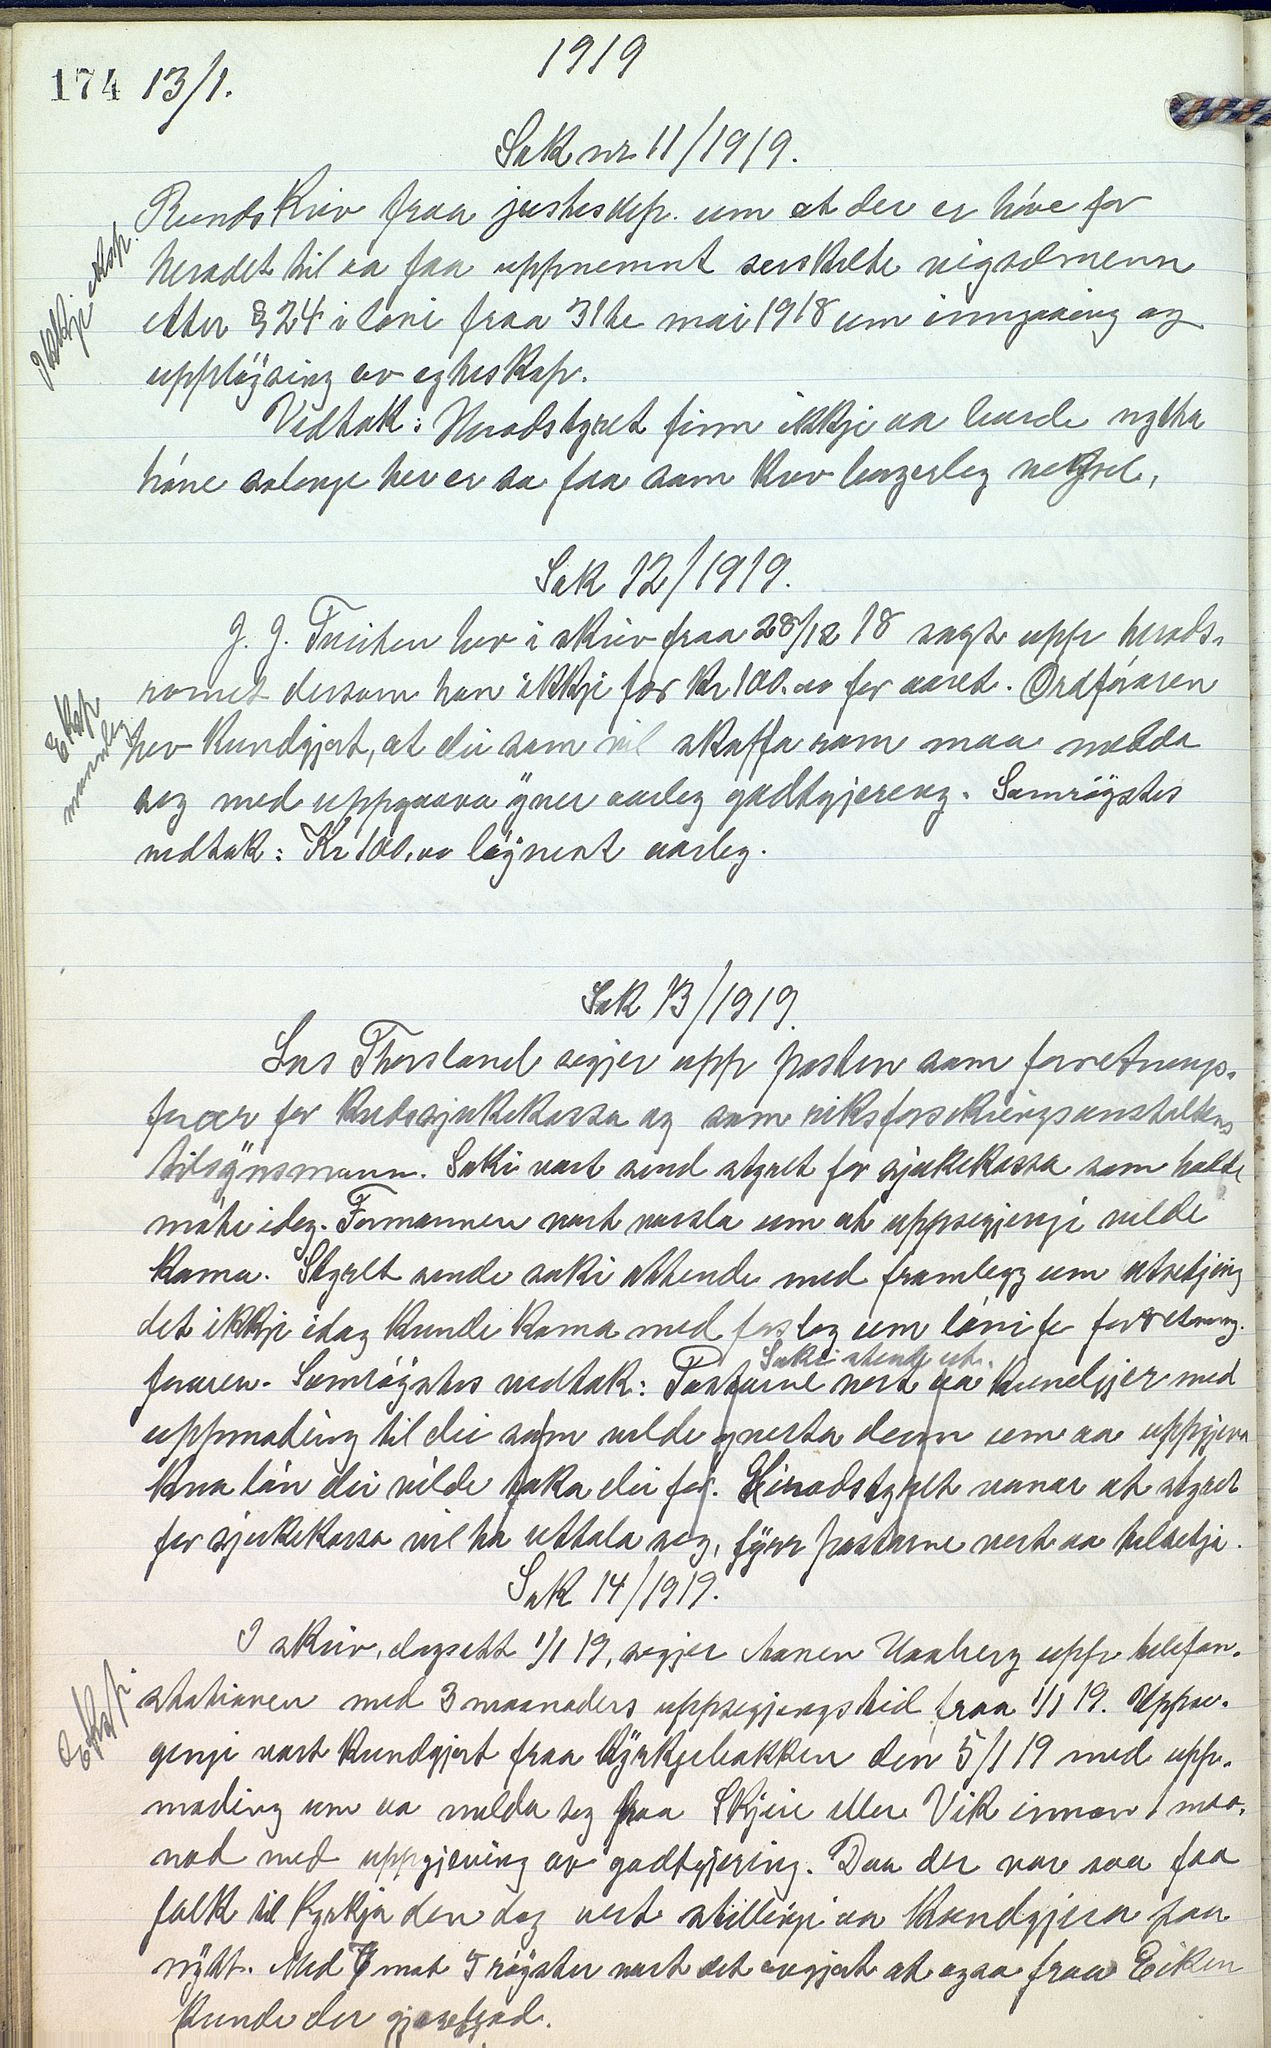 1919
174 13/1.
Sak nr 11/1919.
Rundskriv fraa justisdep. um at der er høve for
heradet til aa faa uppnemnt serskilte vigselmenn
etter § 24 i lovi fraa 31te mai 1918 um inngaaing og
uppløysing av egteskap.
Ikkje eksp.
Vedtak: Heradstyret finn ikkje aa burde nytta
høve solenge her er so faa som krev borgerleg vigsel.
Sak 12/1919.
J. J. Tveiten hev i skriv fraa 28/12 18 sagt upp herads-
romet dersom han ikkje fær Kr 100.00 for aaret. Ordføraren
hev kundgjort, at dei som vil skaffa rom maa melda
seg med uppgaava yver aarleg godtgjering. Samrøystes
vedtak: Kr 100.00 løyvest aarleg.
Eksp
munnleg
Sak 13/1919.
Lars Thorsland segjer upp posten som forretnings-
førar for kredssjukekassa og som riksforsikringsanstaltens
tilsynsmann. Saki vart send styret for sjukekassa som heldt
møte idag. Formannen vart varsla um at uppsegjingi vilde
koma. Styret sende saki attende med framlegg um utsetjing
det ikkje idag kunde koma med forslag um løni for forretnings-
føraren. Samrøystes vedtak: Postarne vert aa kundgjer med
Saki stend ut.
uppmoding til dei som vilde ynsta deim um aa uppgjeva
kva løn dei vilde taka dei for. Heradstyret vonar at styret
for sjukekassa vil ha uttala seg, fyrr postarne vert aa tilsetja.
Sak 14/1919.
I skriv, dagsett 1/1 19, segjer Aanen Vaaberg upp telefon-
stationen med 3 maanaders uppsegjingstid fraa 1/1 19. Uppse-
gjingi vart kundgjort fraa kyrkjebakken den 5/1 19 med upp-
moding um aa melda seg fraa Skjeie eller Vik innan 1 maa-
nad med uppgjeving av godtgjering. Daa der var saa faa
folk til kyrkja den dag vert stillingi aa kundgjera paa
nytt. Med 7 mot 5 røyster vart det avgjort at ogso fraa Eiken
kunde der gjerast bod.
Eksp.